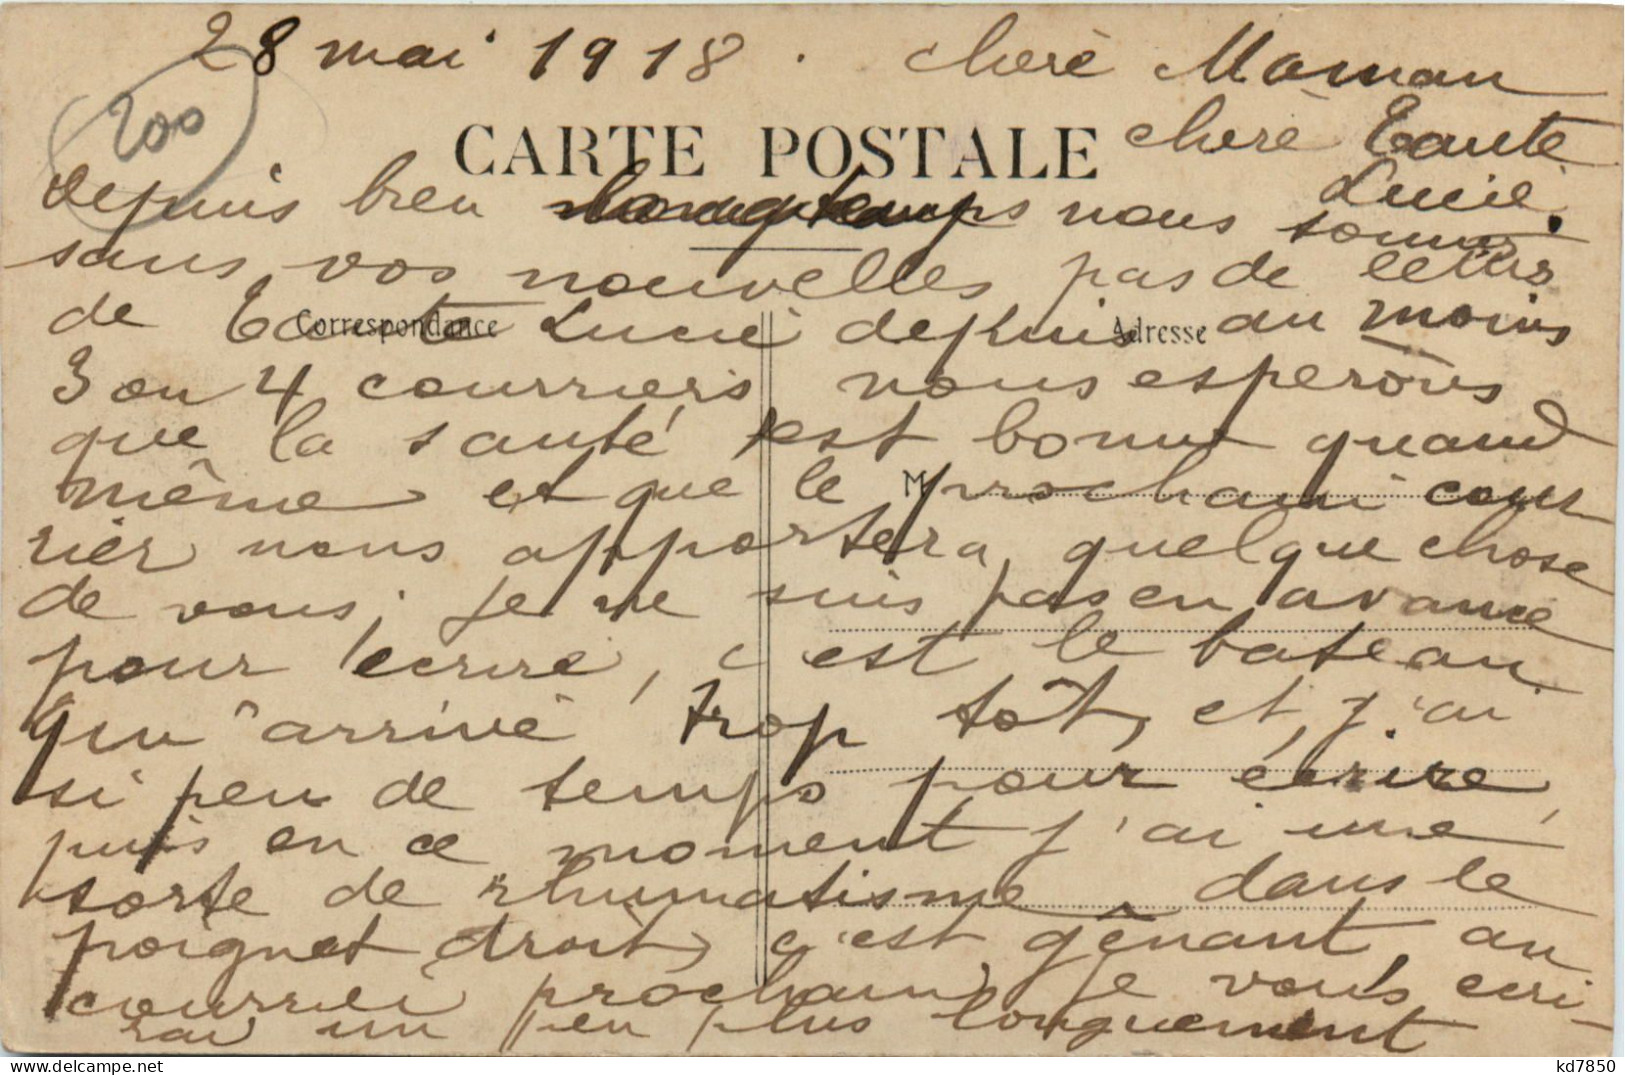 28 mai 1918. cherè Maman
200
CARTE POSTALE
cherè Tante
Lucie.
depuis bien longtemps nous sommes
sans vos nouvelles pas de lettres
de Tante Lucie depuis au moins
Correspondance
Adresse
3 ou 4 courriers, nous esperons
que la santé est bonne quand
même et que le prochain cour
M
rier nous apportera, quelque chose
de vous; je ne suis pas en avance
pour ecrire, c'est le bateau
qui arrive trop tôt, et, j'ai
si peu de temps pour écrire,
puis en ce moment j'ai une
sorte de rhumatisme dans le
poignet droit, c'est gênant, au
courrier prochain, je vous ecri-
rai un peu plus longuement
kd7850